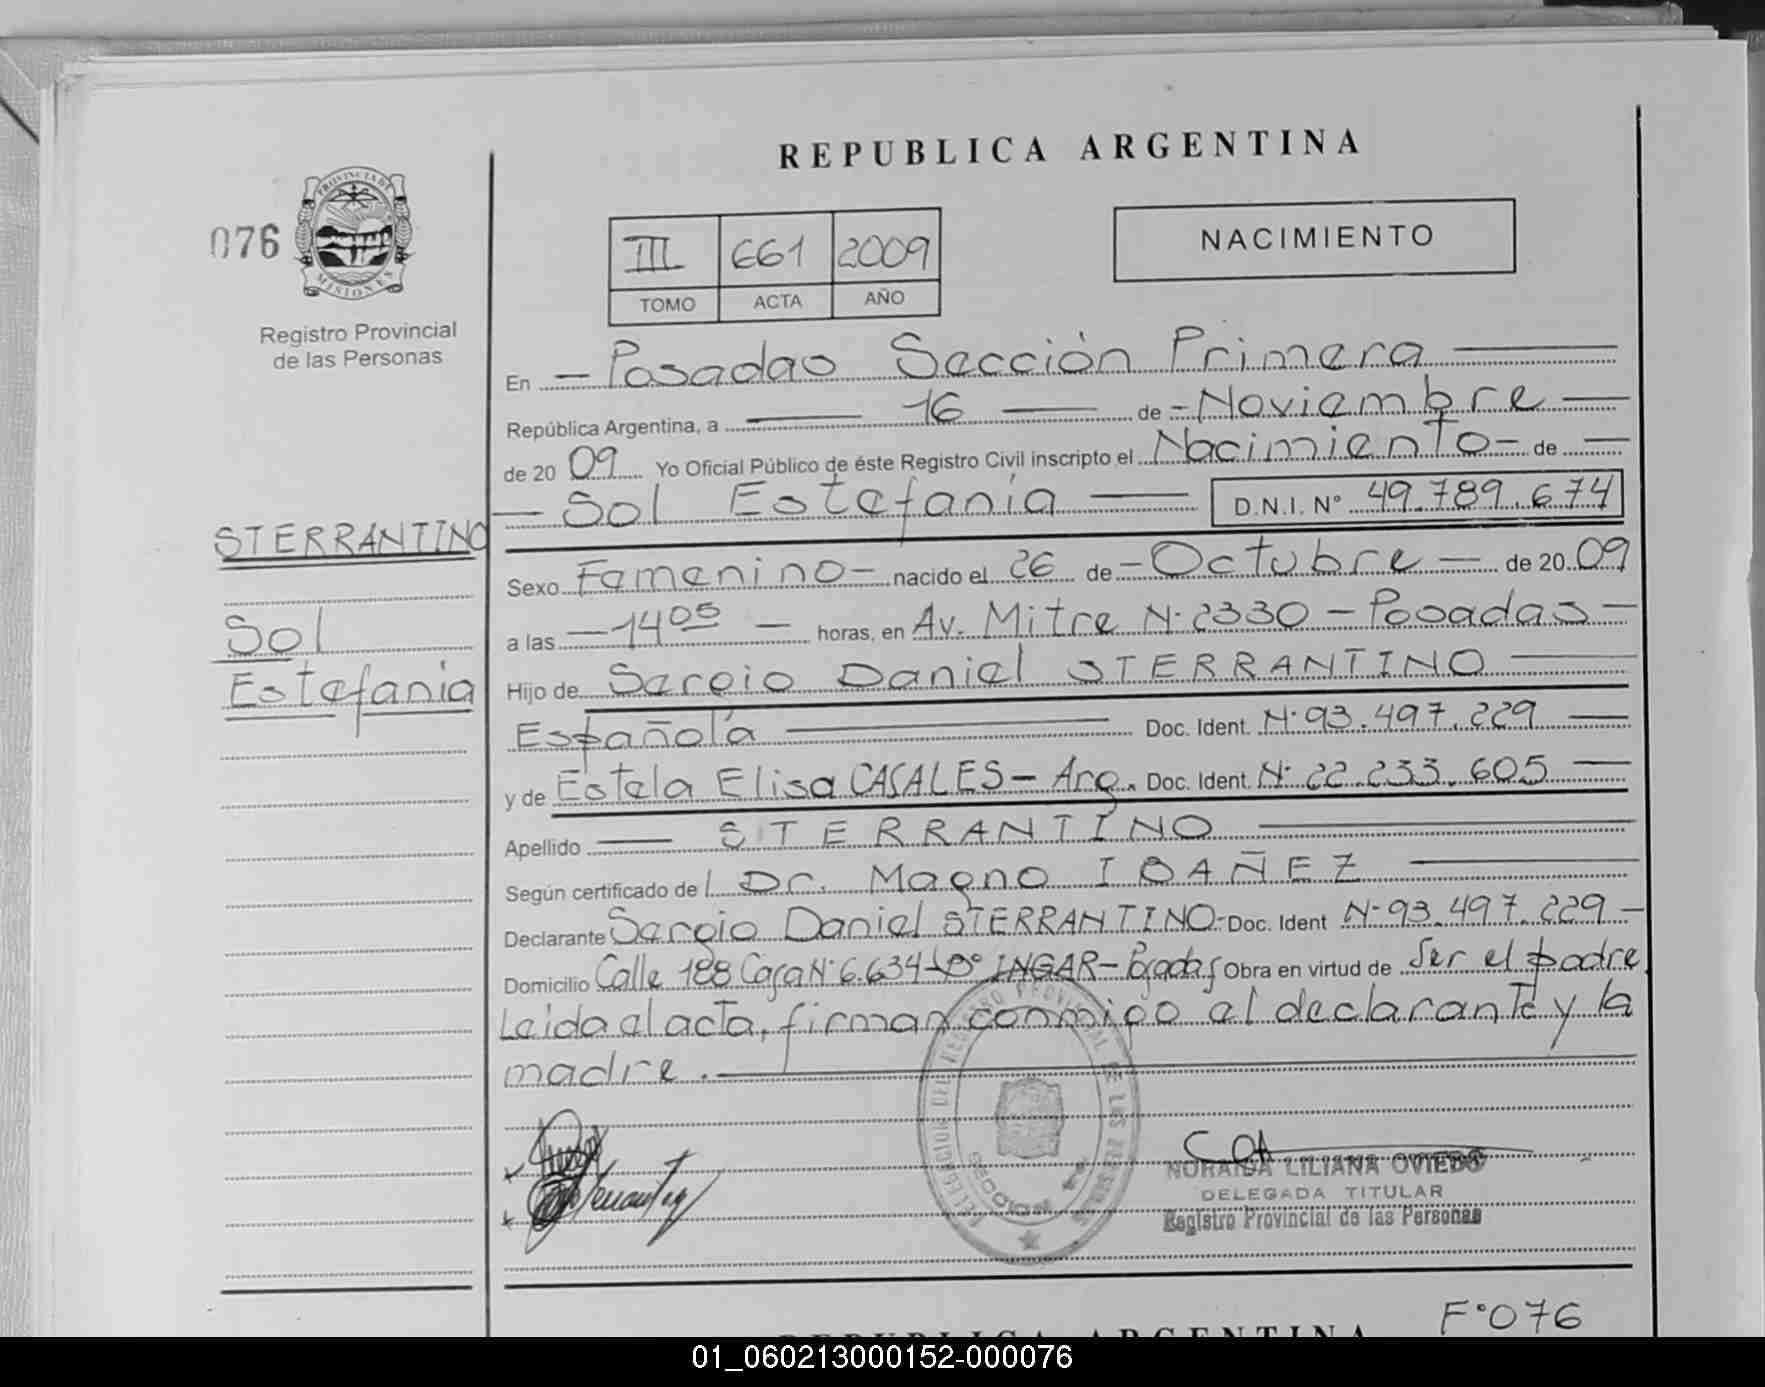 REPUBLICA ARGENTINA
076
PROVINCIA DE
MISIONES
Registro Provincial
de las Personas
III 661 2009
TOMO ACTA AÑO
NACIMIENTO
En Posadas Sección Primera
República Argentina, a 16 de Noviembre
de 2009 Yo Oficial Público de éste Registro Civil inscripto el Nacimiento de
Sol Estefanía D.N.I. N° 49.789.674
STERRANTINO
Sol
Estefania
Sexo Femenino nacido el 26 de Octubre de 2009
a las 14 05 horas, en Av. Mitre N° 2330 - Posadas
Hijo de Sergio Daniel STERRANTINO
Española Doc. Ident. N° 93.497.229
y de Estela Elisa CASALES - Arg. Doc. Ident. N° 22.233.605
Apellido STERRANTINO
Según certificado del Dr. Magno IBAÑEZ
Declarante Sergio Daniel STERRANTINO Doc. Ident N° 93.497.229
Domicilio Calle 188 Casa N° 6.634 B° INGAR - Posadas Obra en virtud de Ser el padre
Leida el acta, firman conmigo el declarante y la
madre.
NORAIDA LILIANA OVIEDO
DELEGADA TITULAR
Registro Provincial de las Personas
F° 076
REPUBLICA ARGENTINA
01_060213000152-000076